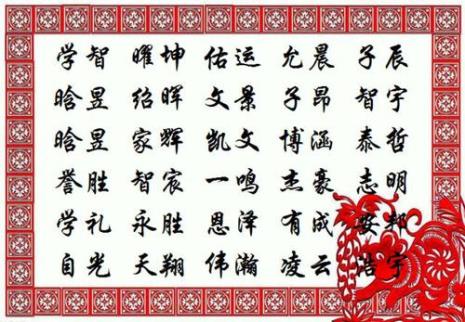 学智 曜坤 佑运 允晨 子辰
晗昱 绍晖 文景 子昂 智宇
晗昱 家辉 凯文 博涵 泰哲
誉胜 智宸 一鸣 杰豪 志明
学礼 永胜 恩泽 有成 安邦
自光 天翔 伟瀚 凌云 浩宇